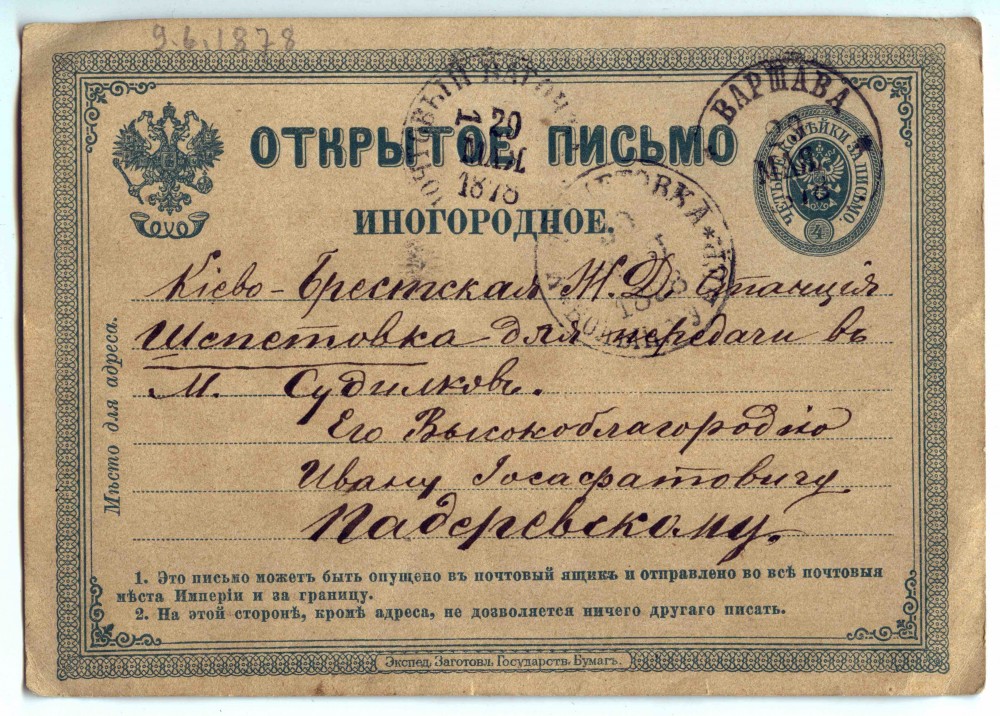 9.6.1878
ПОЧТОВЫЙ ВАГОНЪ
1
29
МАЯ
1878
ВАРШАВА
МАЯ
1878
ЧЕТЫРЕ КОПѢЙКИ ЗА ПИСЬМО.
4
ОТКРЫТОЕ ПИСЬМО
ИНОГОРОДНОЕ.
ШЕПЕТОВКА
30
1878
Мѣсто для адреса.
Кіево-Брестская Ж. Д. Станція
Шепетовка для передачи въ
М. Судилковъ.
Его Высокоблагородію
Ивану Іосафатовичу
Падеревскому.
1. Это письмо можетъ быть опущено въ почтовый ящикъ и отправлено во всѣ почтовыя
мѣста Имперіи и за границу.
2. На этой сторонѣ, кромѣ адреса, не дозволяется ничего другаго писать.
Экспед. Заготовл. Государств. Бумагъ.